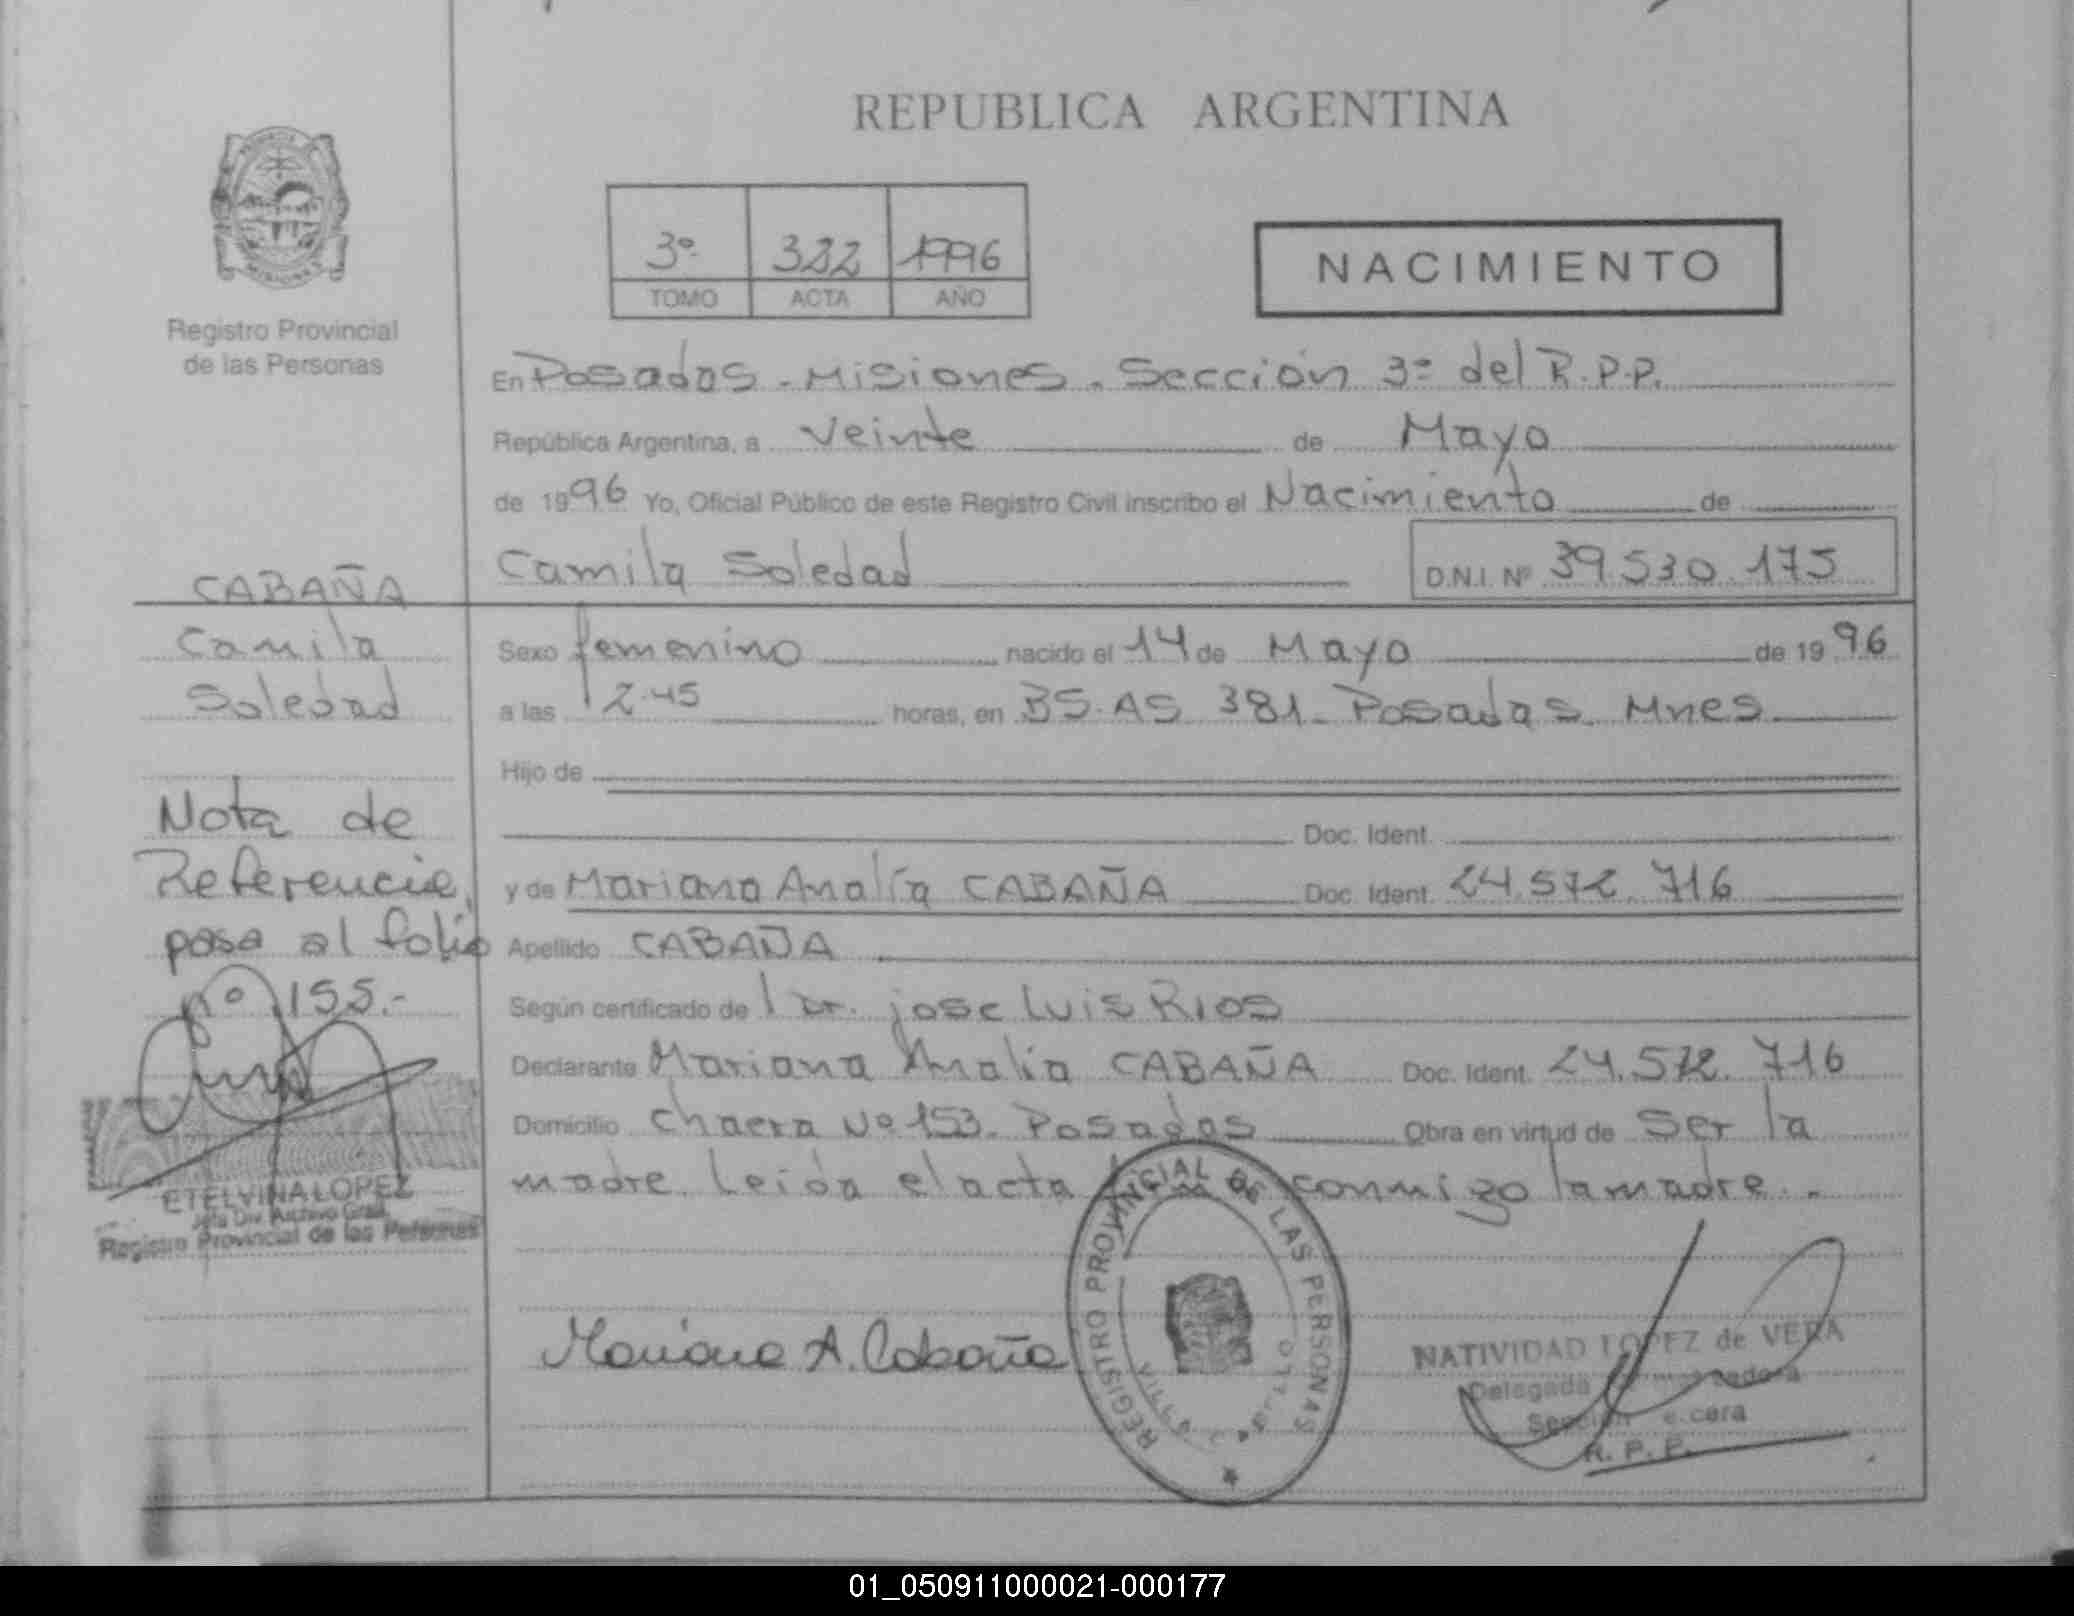 REPUBLICA ARGENTINA
3º 322 1996
TOMO ACTA AÑO
NACIMIENTO
Registro Provincial
de las Personas
En Posadas - Misiones. Sección 3ª del R.P.P.
República Argentina, a Veinte de Mayo
de 1996 Yo, Oficial Público de este Registro Civil inscribo el Nacimiento de
Camila Soledad D.N.I. Nº 39.530.175
CABAÑA
Camila
Soledad
Sexo femenino nacido el 14 de Mayo de 1996
a las 12.45 horas, en BS.AS 381. Posadas. Mnes
Hijo de
Doc. Ident.
y de Mariana Analía CABAÑA Doc. Ident. 24.572.716
Apellido CABAÑA
Según certificado de Dr. jose Luis Rios
Declarante Mariana Analía CABAÑA Doc. Ident. 24.572.716
Domicilio chacra Nº 153. Posadas Obra en virtud de Ser la
madre. Leida el acta conmigo la madre.
Nota de
Referencia,
pasa al folio
nº 155.-
ETELVINA LOPEZ
Jefa Div. Archivo Gral.
Registro Provincial de las Personas
Mariana A. Cabaña
REGISTRO PROVINCIAL DE LAS PERSONAS
NATIVIDAD LOPEZ de VERA
Delegada
Sección
R. P. P.
01_050911000021-000177